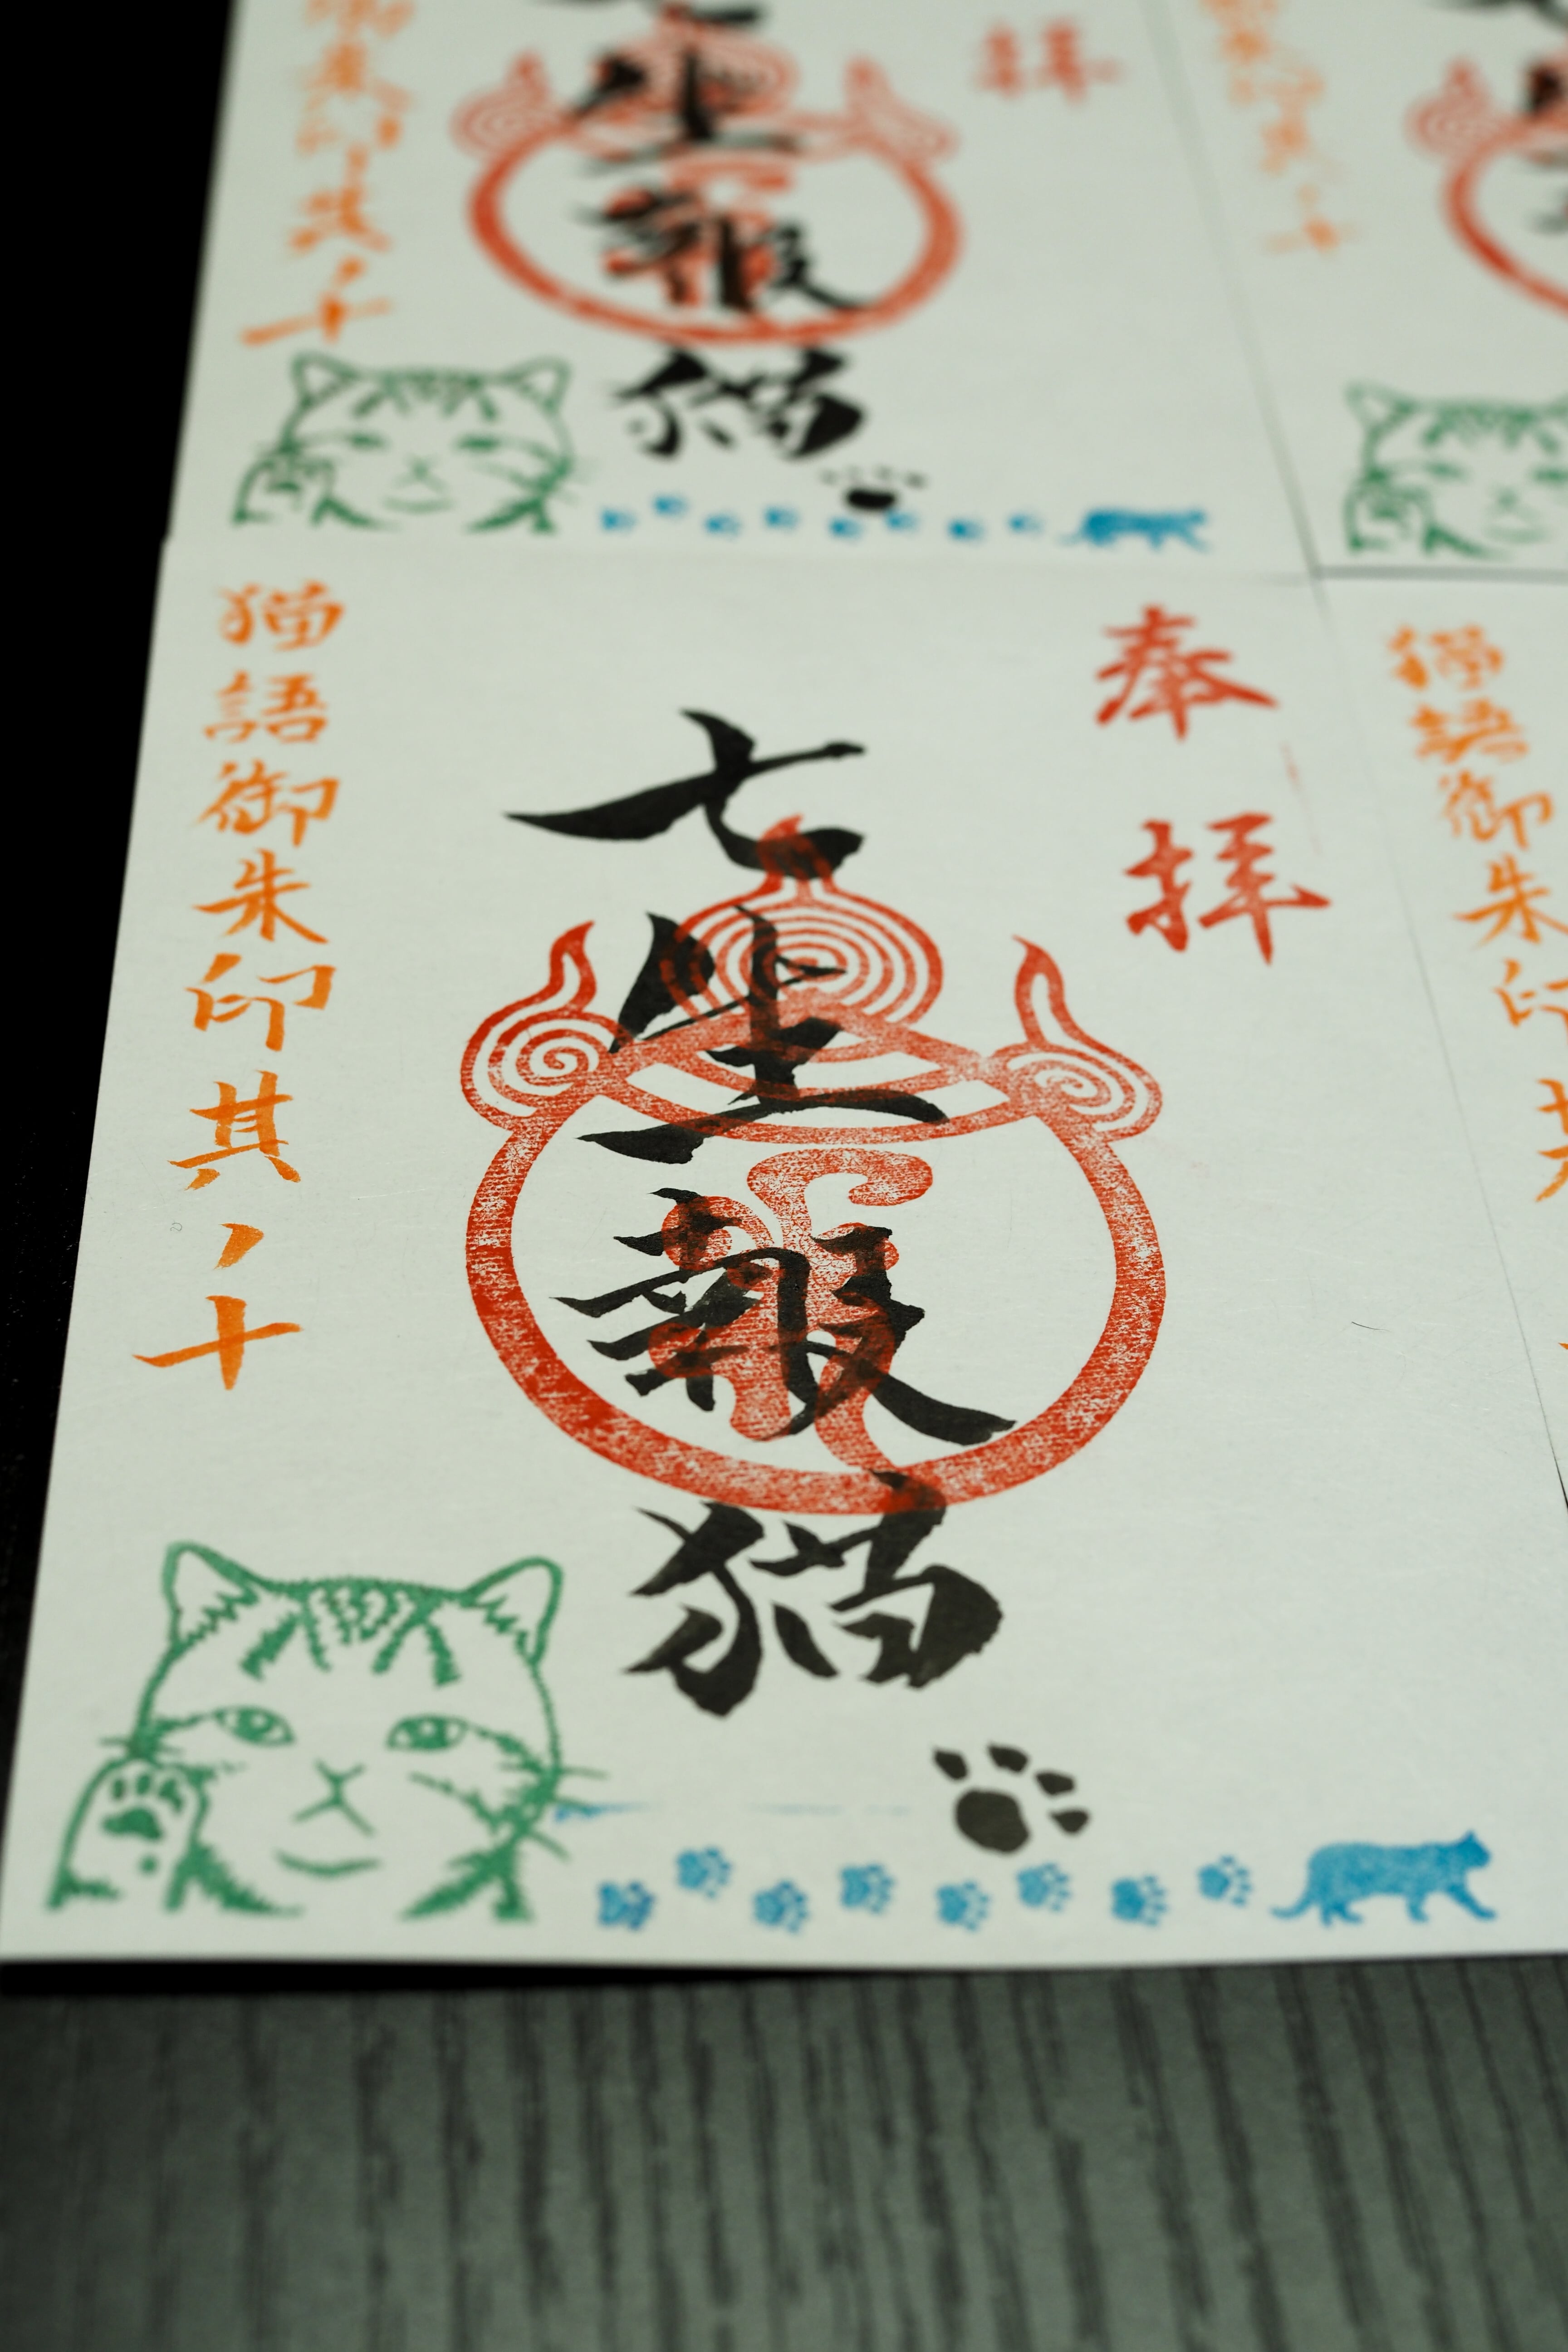 奉拝
七生報猫
猫語御朱印其ノ十
拝
生報猫
朱印其ノ十
猫語御朱印其